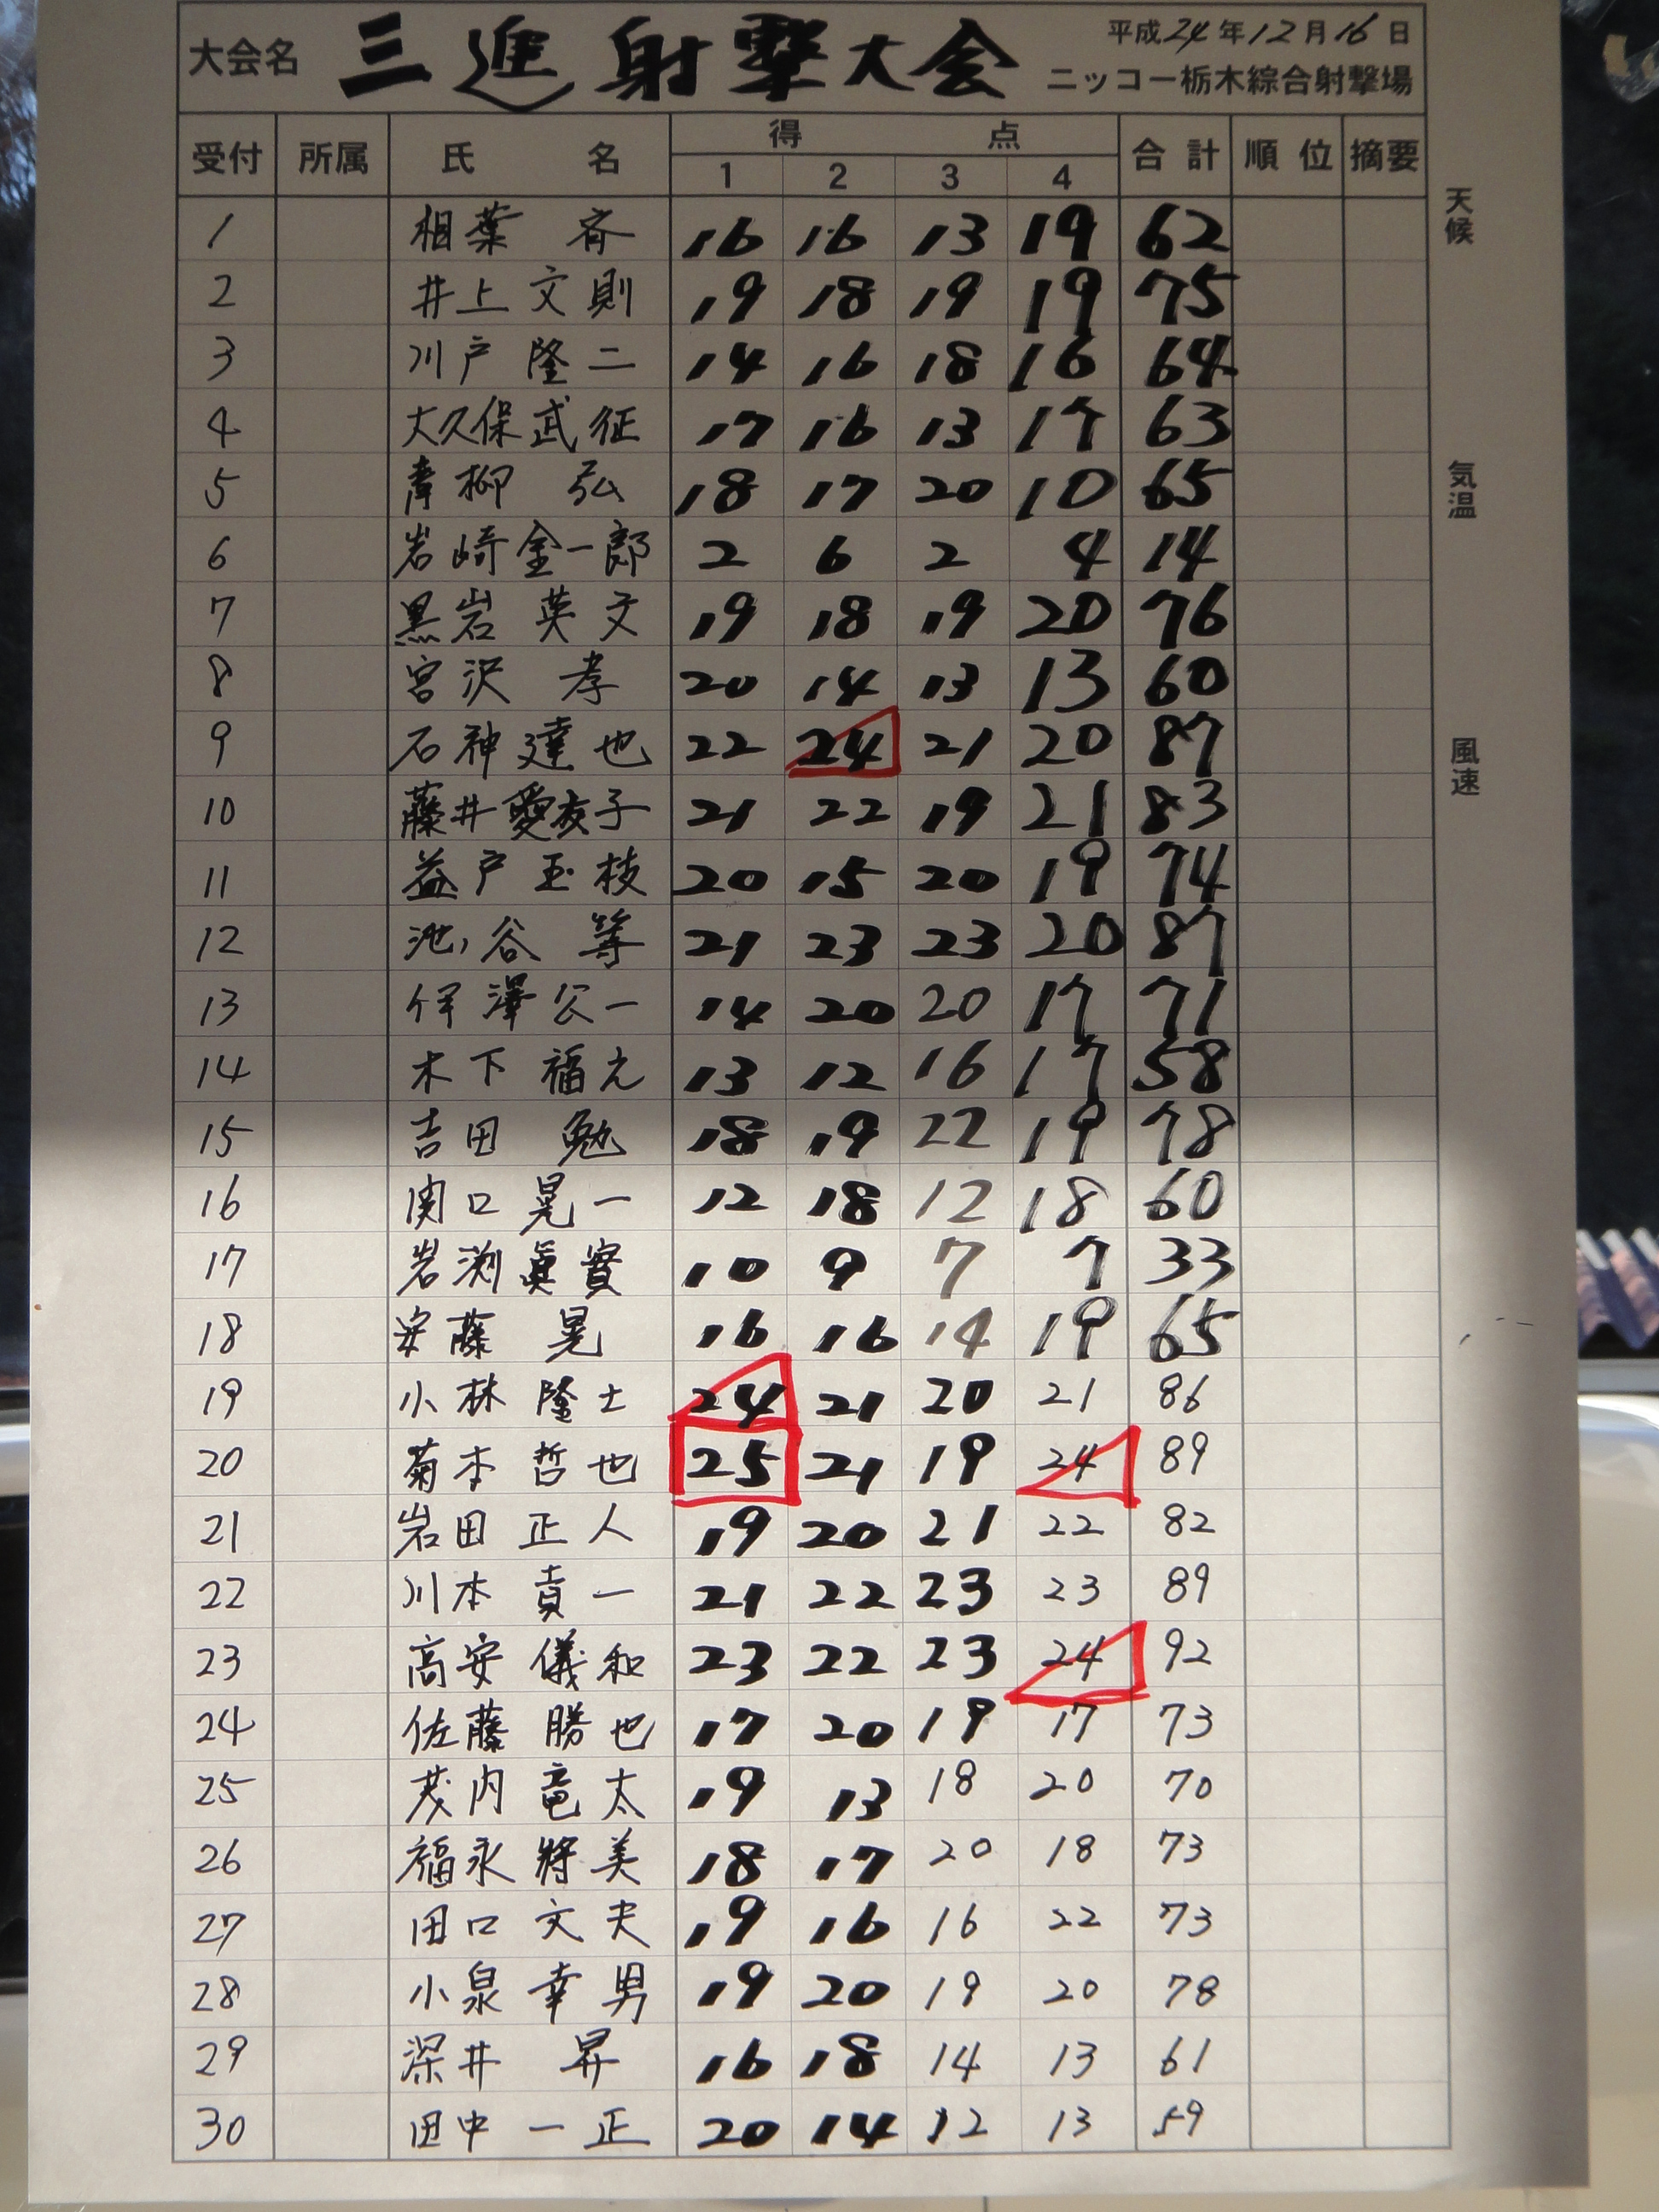 大会名 三進射撃大会 平成24年12月16日
ニッコー栃木綜合射撃場
受付 所属 氏名 得点 合計 順位 摘要
1 2 3 4
1 相葉 斉 16 16 13 19 62
2 井上文則 19 18 19 19 75
3 川戸隆二 14 16 18 16 64
4 大久保武征 17 16 13 17 63
5 青柳 弘 18 17 20 10 65
6 岩崎金一郎 2 6 2 4 14
7 黒岩英文 19 18 19 20 76
8 宮沢 孝 20 14 13 13 60
9 石神達也 22 24 21 20 87
10 藤井愛友子 21 22 19 21 83
11 益戸玉枝 20 15 20 19 74
12 池谷 等 21 23 23 20 87
13 伊澤公一 14 20 20 17 71
14 木下福元 13 12 16 17 58
15 吉田 勉 18 19 22 19 78
16 関口晃一 12 18 12 18 60
17 岩渕眞實 10 9 7 7 33
18 安藤 晃 16 16 14 19 65
19 小林隆士 24 21 20 21 86
20 菊本哲也 25 21 19 24 89
21 岩田正人 19 20 21 22 82
22 川本貢一 21 22 23 23 89
23 高安儀和 23 22 23 24 92
24 佐藤勝也 17 20 19 17 73
25 茂内竜太 19 13 18 20 70
26 福永將美 18 17 20 18 73
27 田口文夫 19 16 16 22 73
28 小泉幸男 19 20 19 20 78
29 深井 昇 16 18 14 13 61
30 田中一正 20 14 12 13 59
天候
気温
風速